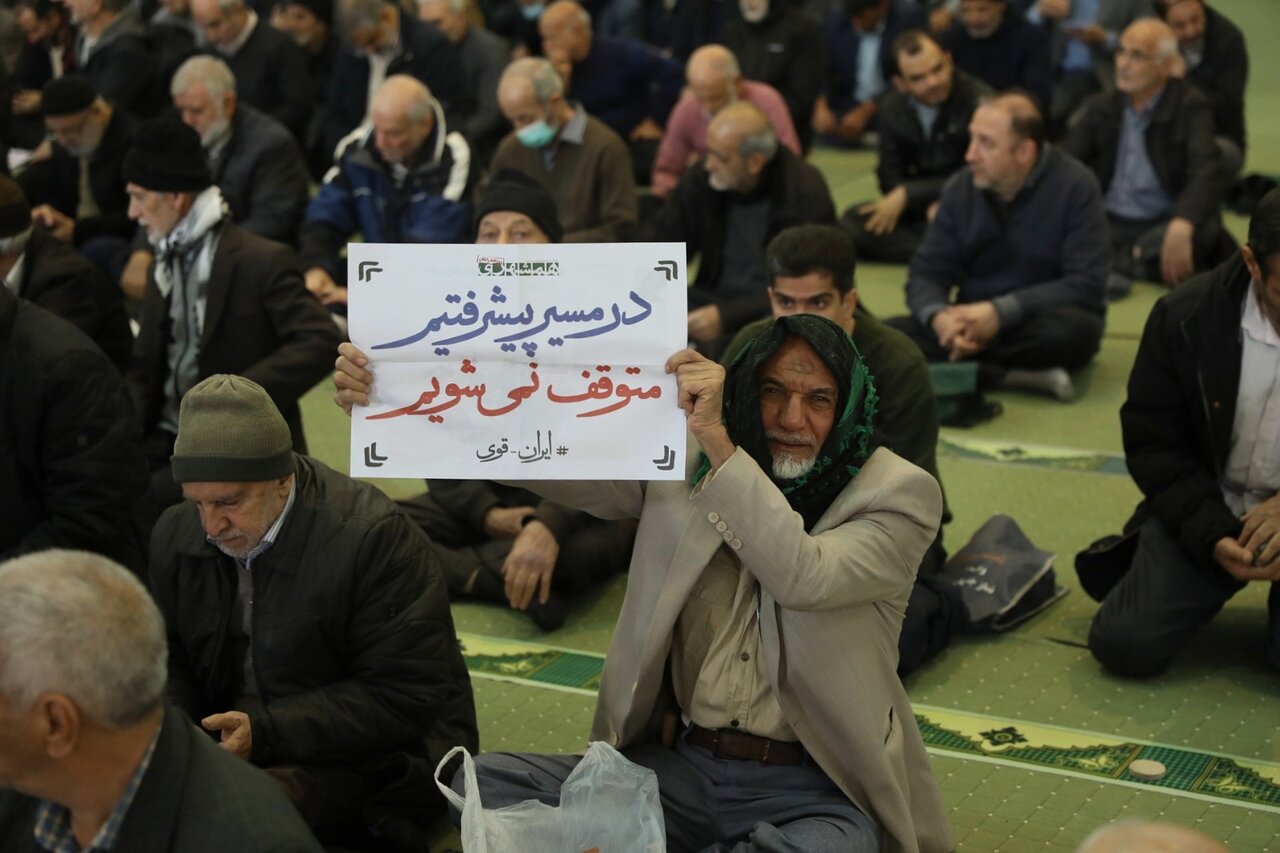 همشهری
در مسیر پیشرفتیم
متوقف نمی شویم
#ایران-قوی